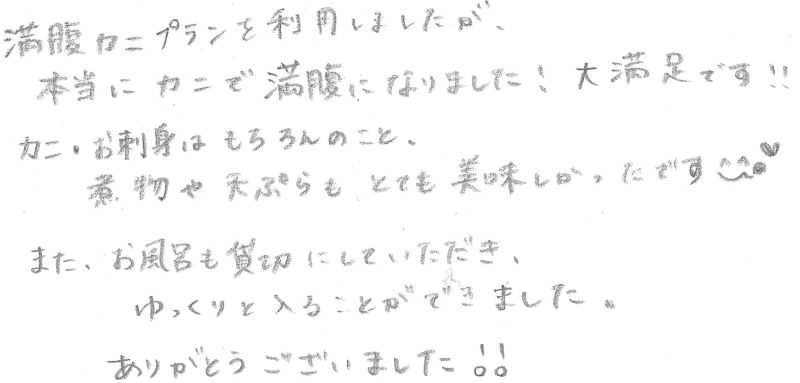 満腹カニプランを利用しましたが、
本当にカニで満腹になりました！大満足です!!
カニ・お刺身はもちろんのこと、
煮物や天ぷらもとても美味しかったです
また、お風呂も貸切にしていただき、
ゆっくりと入ることができました。
ありがとうございました!!